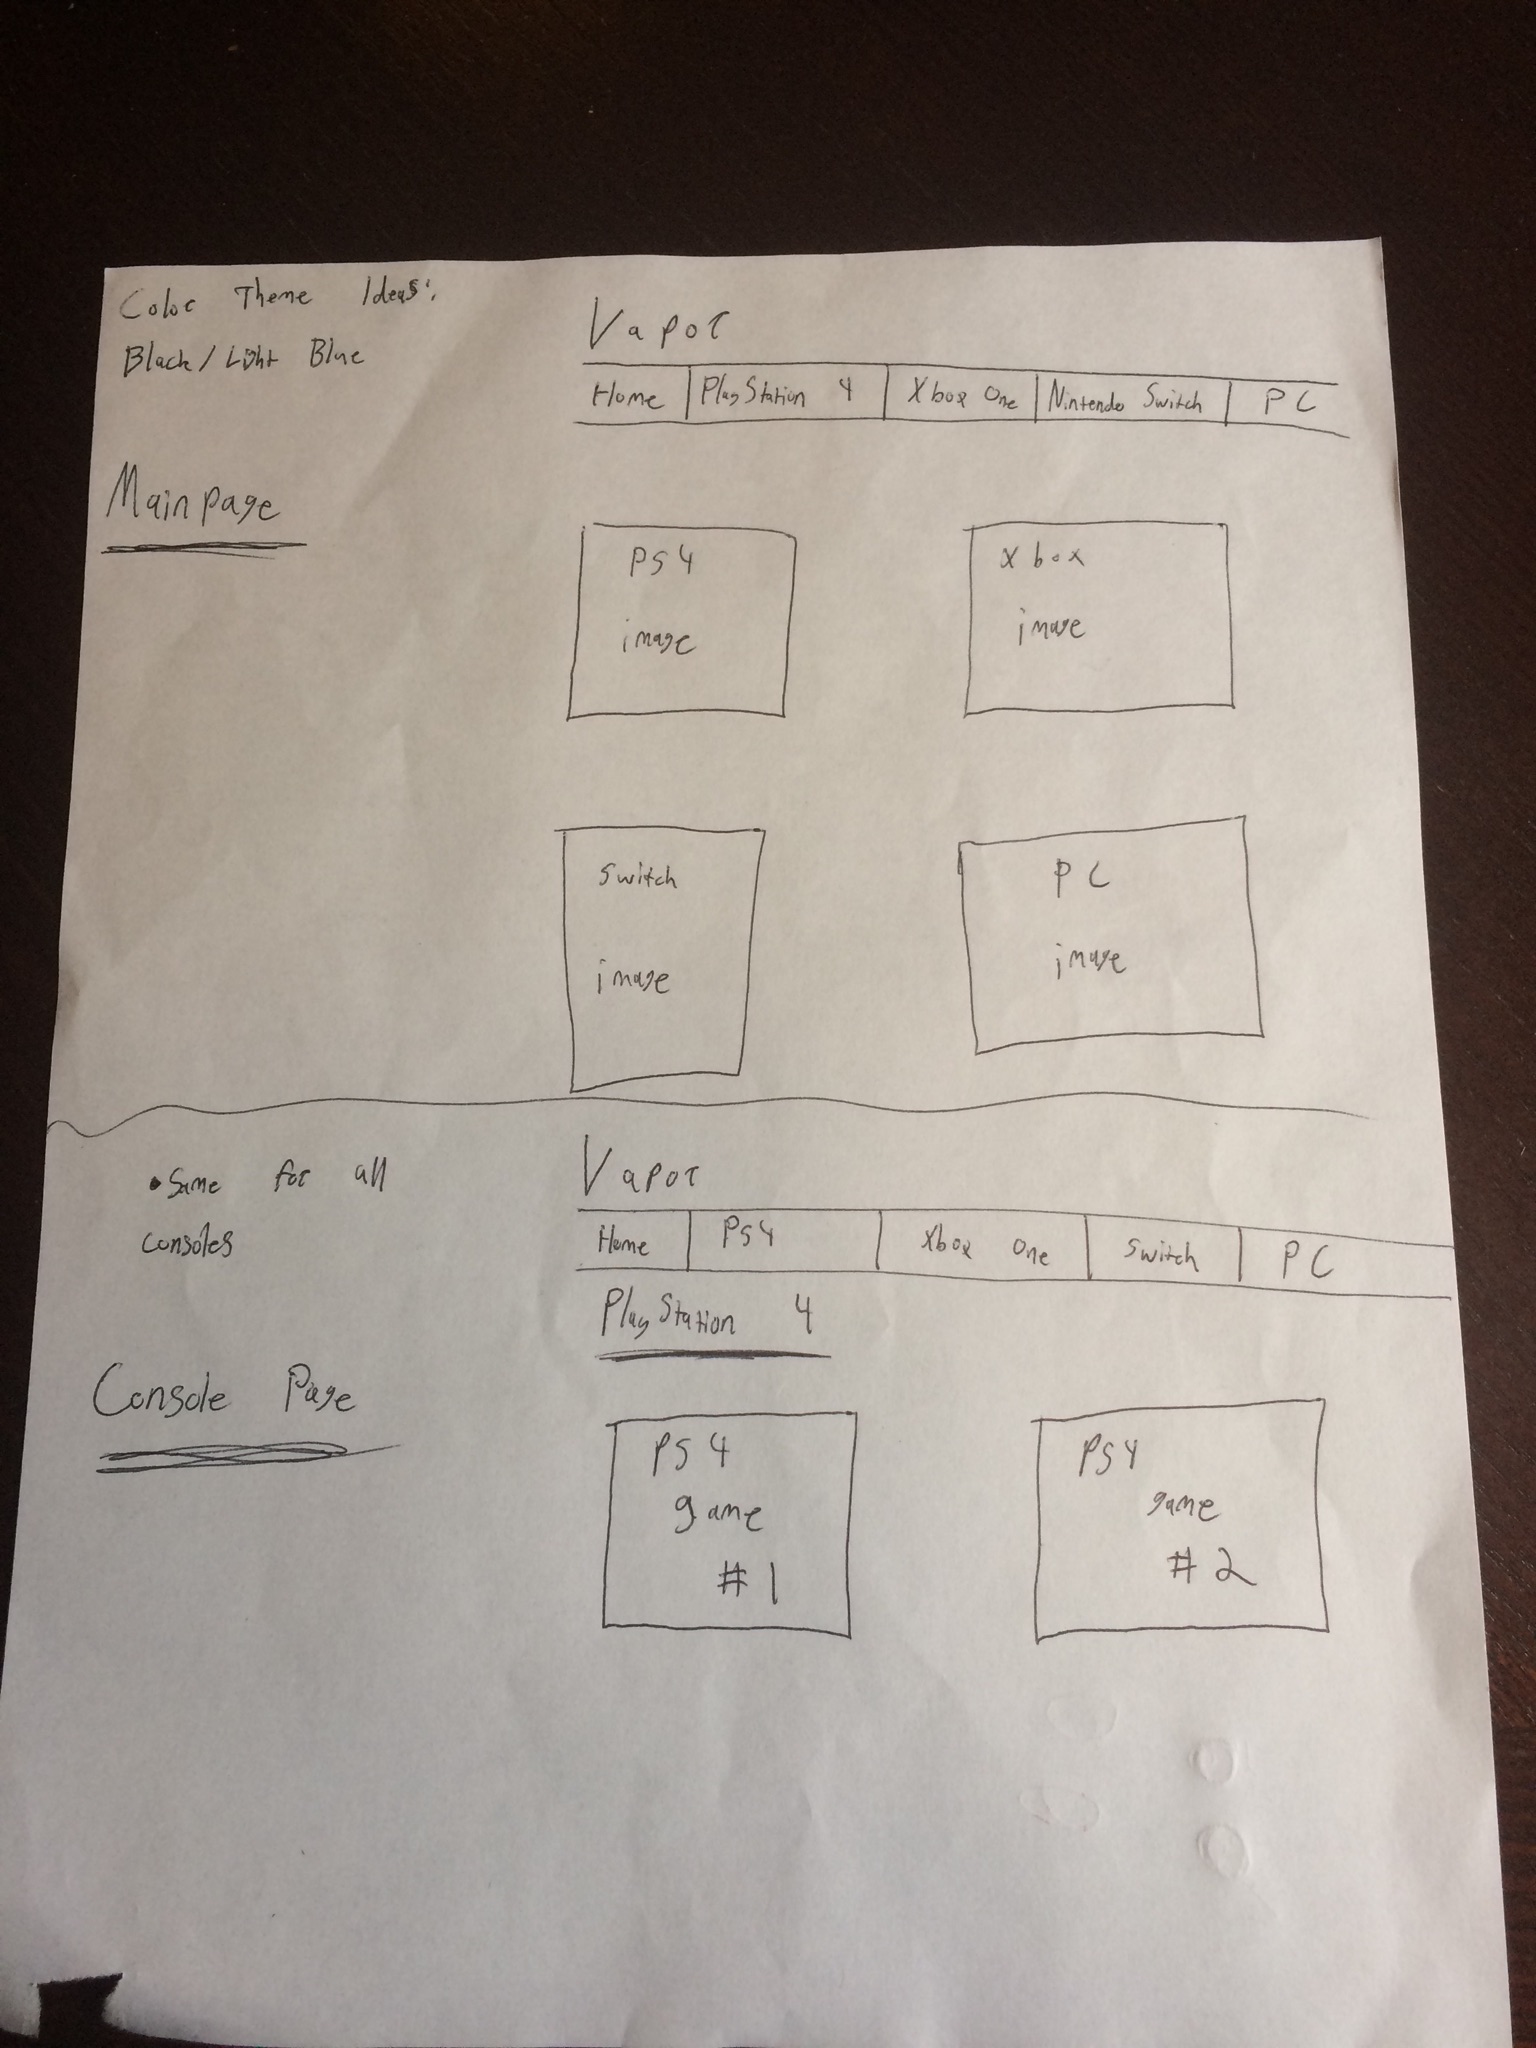 Color Theme Ideas:
Black/Light Blue
Main page
Vapor
Home | PlayStation 4 | Xbox One | Nintendo Switch | PC
PS4
image
Xbox
image
Switch
image
PC
image
• Same for all
consoles
Console Page
Vapor
Home | PS4 | Xbox One | Switch | PC
PlayStation 4
PS4
game
#1
PS4
game
#2